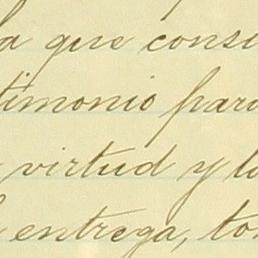 la que consi
timonio para
virtud y la
entrega, to